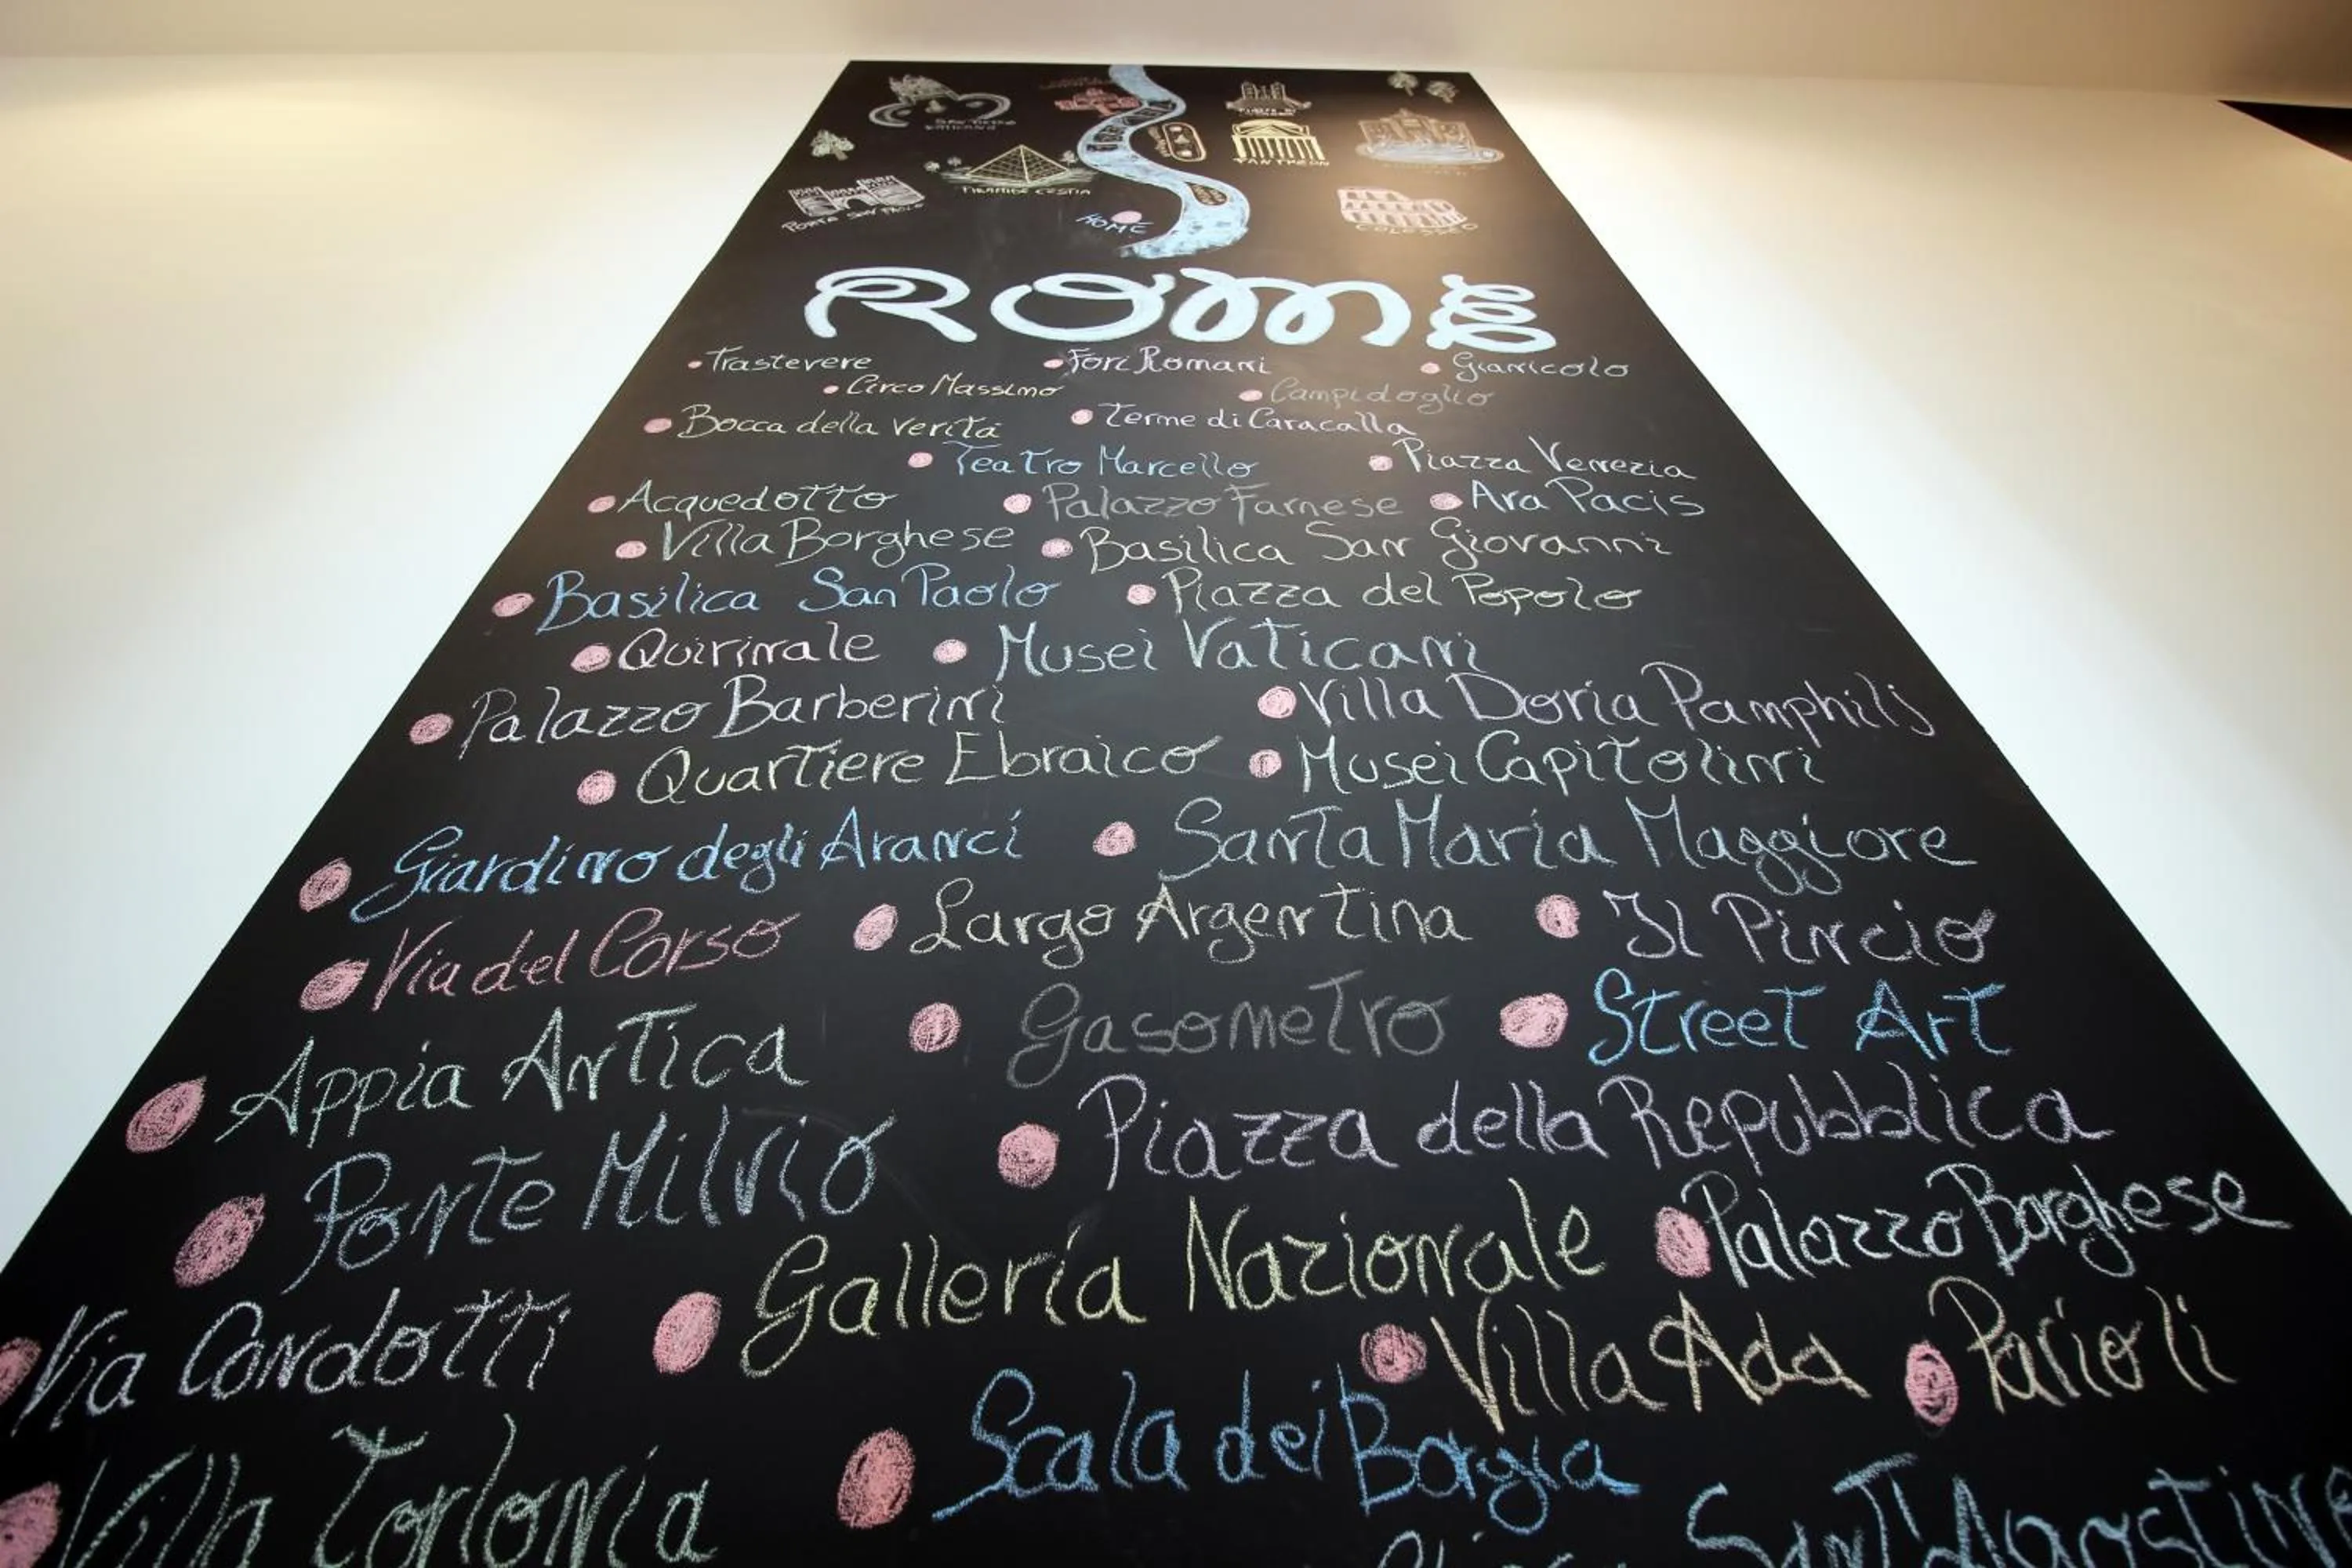 SAN PIETRO
VATICANO
PIAZZA DI
PANTHEON
PIRAMIDE CESTIA
PORTA SAN PAOLO
HOME
COLOSSEO
ROME
Trastevere Fori Romani Gianicolo
Circo Massimo Campidoglio
Bocca della Verità Terme di Caracalla
Teatro Marcello Piazza Venezia
Acquedotto Palazzo Farnese Ara Pacis
Villa Borghese Basilica San Giovanni
Basilica San Paolo Piazza del Popolo
Quirinale Musei Vaticani
Palazzo Barberini Villa Doria Pamphilj
Quartiere Ebraico Musei Capitolini
Giardino degli Aranci Santa Maria Maggiore
Via del Corso Largo Argentina Il Pincio
Appia Antica Gasometro Street Art
Ponte Milvio Piazza della Repubblica
Galleria Nazionale Palazzo Borghese
Via Condotti Villa Ada Parioli
Villa Torlonia Scala dei Borgia
Sant'Agostino